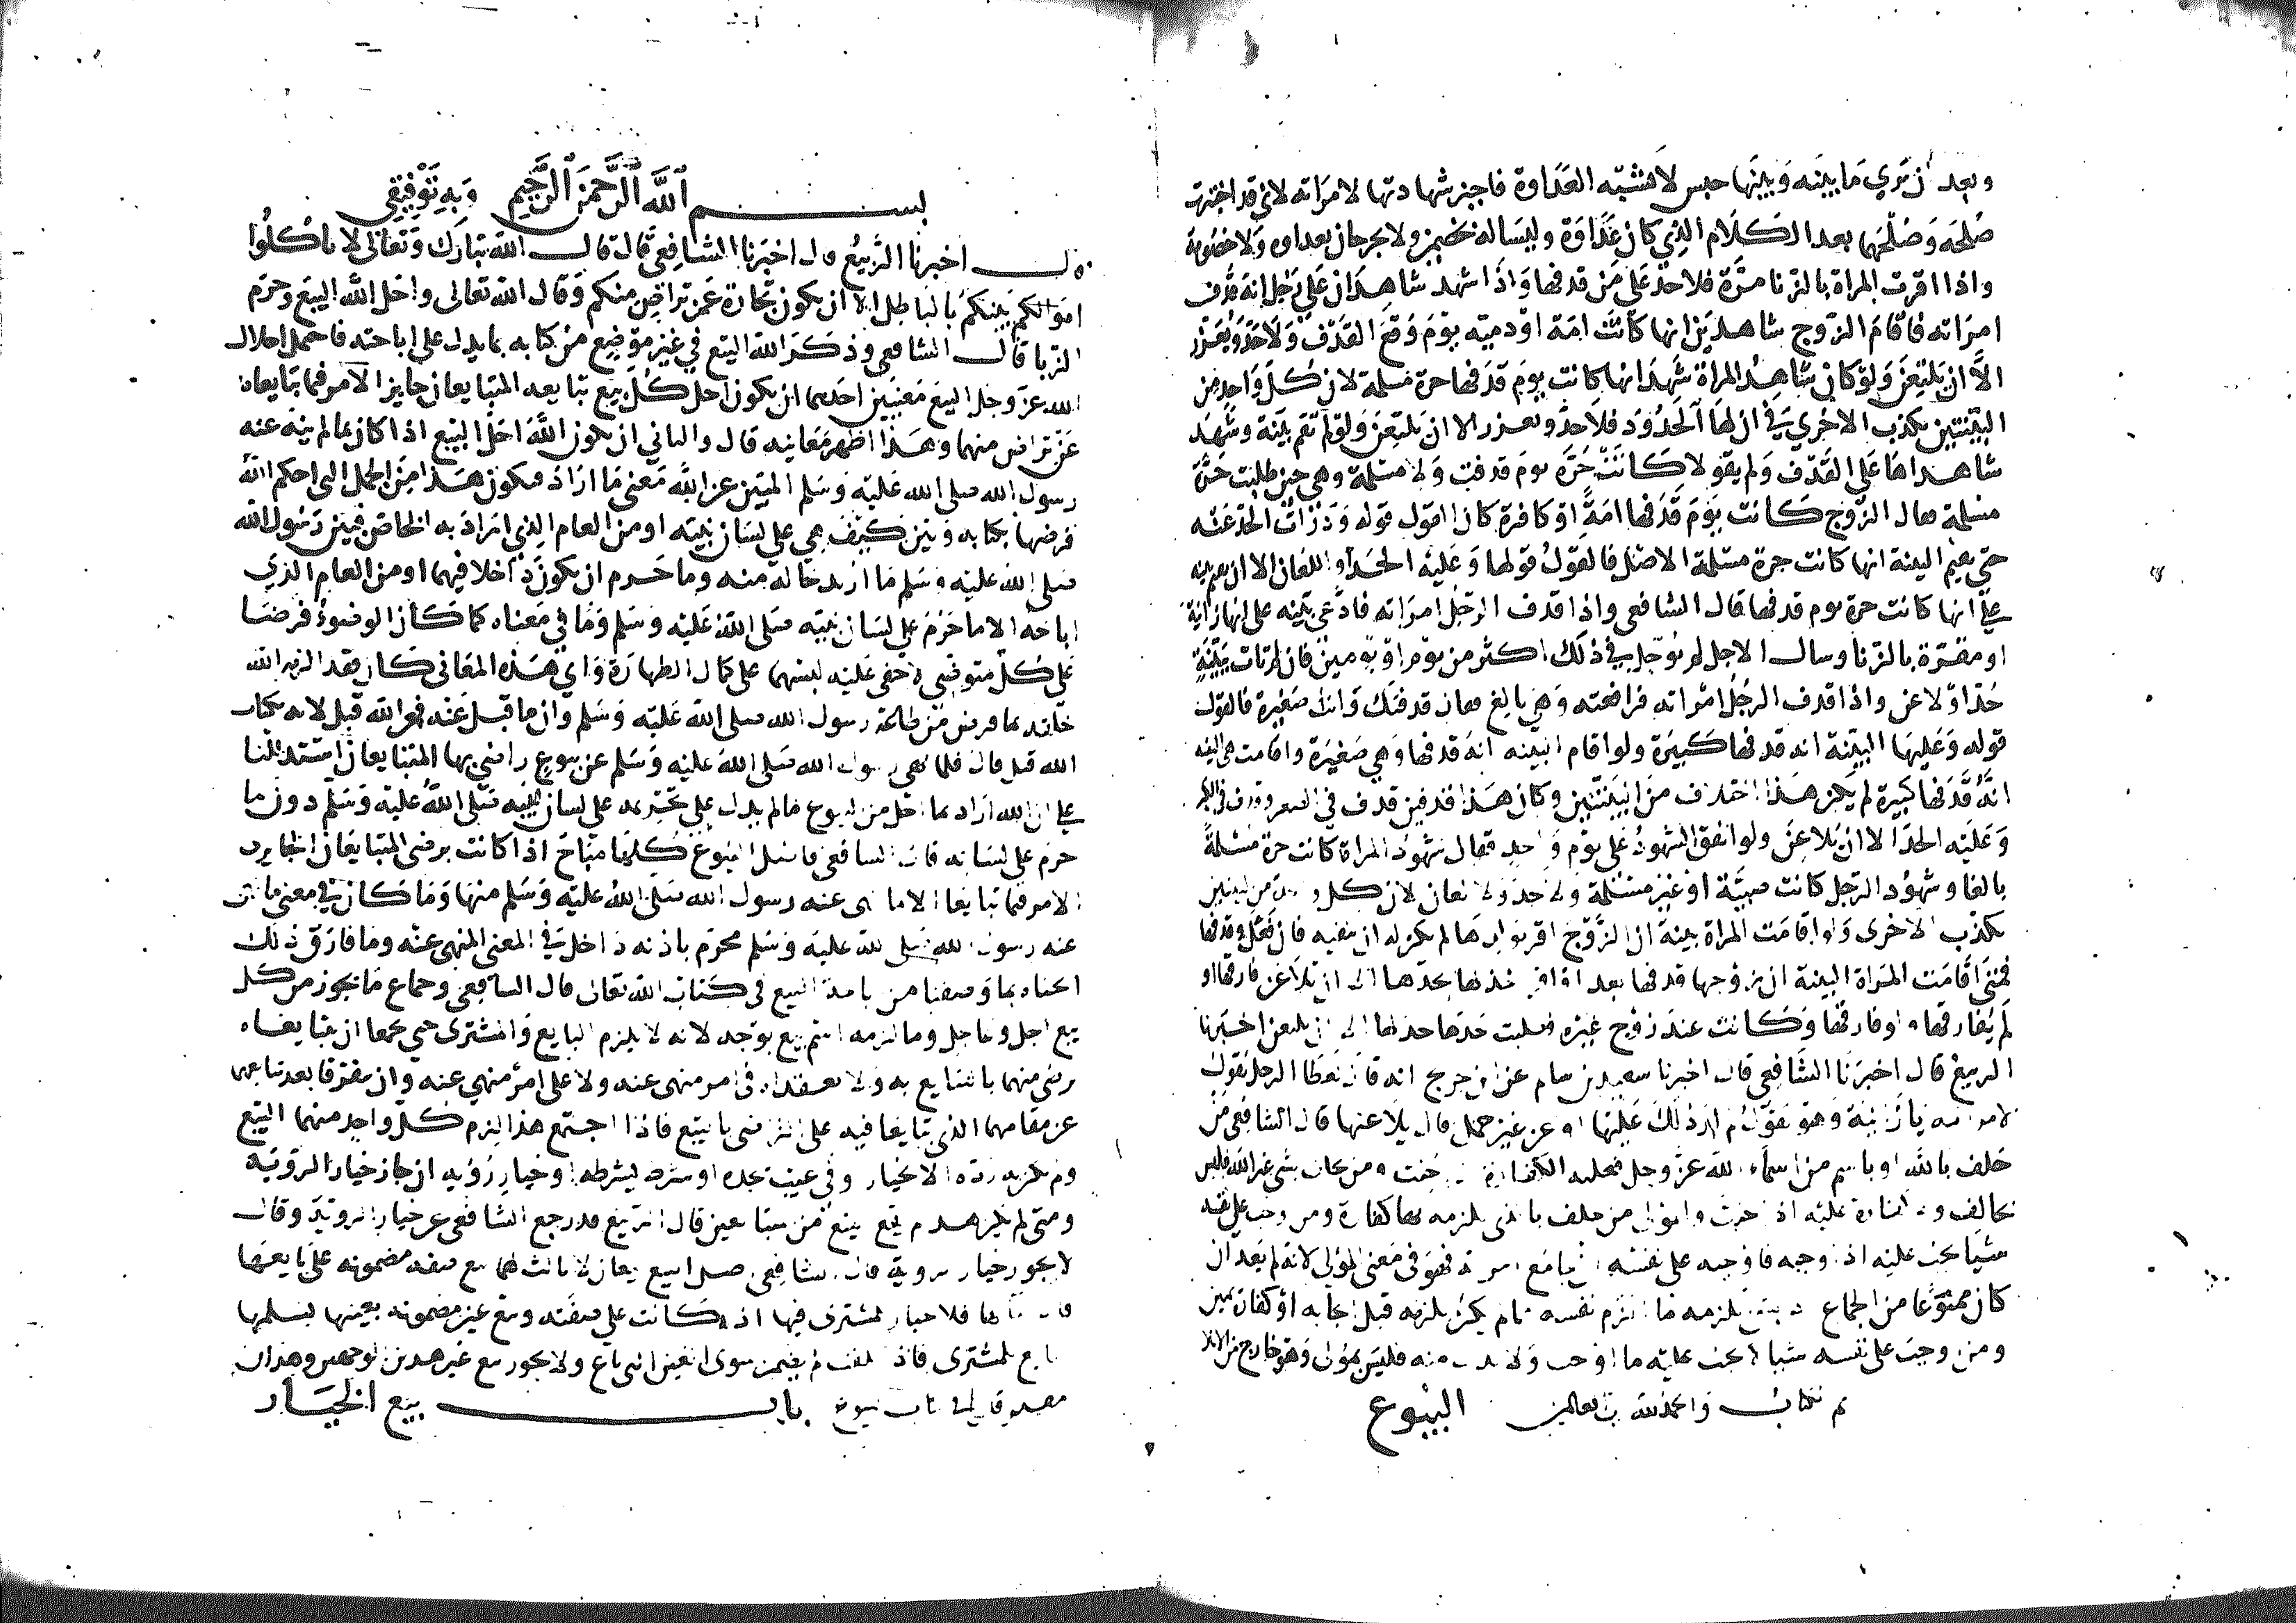 وبعد ان تري ما بينه وبينها حبس لا تشبه العداوة فاجيز شهادتها لامراته لاني قد اختبرت
صلحه وصلحها بعد الكلام الذي كان عداوة وليسا له بخصمين ولا يجرحان بعداوه ولا خصومة
واذا اقرت المراة بالزنا مرة فلا حد علي من قدفها واذا شهد شاهدان علي رجل انه قدف
امراته فاقام الزوج شاهدين انها كانت امة او دميه يوم وقع القدف ولا حد ويعزر
الا ان يلتعن ولو كان شاهد المراة شهدا انها كانت يوم قدفها حرة مسلمة لان كل واحد من
البينتين يكذب الاخري في ان لها الحد ود فلا حد ويعزر الا ان يلتعن ولو لم تقم بينة وشهد
شاهداها علي القدف ولم يقولا كانت حرة يوم قدفت ولا مسلمة وهي حين طلبت حرة
مسلمة فقال الزوج كانت يوم قدفها امة او كافرة كان القول قوله ودرات الحد عنه
حتي تقيم البينة انها كانت حرة مسلمة الاصل فالقول قولها وعليه الحد او اللعان الا ان يقيم بينه
علي انها كانت حرة يوم قدفها قال الشافعي واذا قدف الرجل امراته فادعى بينه على انها زانية
او مقرة بالزنا وسال الاجل لم يوجل في ذلك اكثر من يوم او يومين فان لم تات ببينة
حد او لاعن واذا قدف الرجل امراته فرافعته وهي بالغ فقال قدفتك وانت صغيرة فالقول
قوله وعليها البينة انه قدفها كبيرة ولو اقام البينه انه قدفها وهي صغيرة واقامت هي البينه
انه قدفها كبيرة لم يكن هذا اختلاف من البينتين وكان هذا قدفين قدف في الصغر وقدف في الكبر
وعليه الحد الا ان يلاعن ولو اتفق الشهود على يوم واحد فقال شهود المراة كانت حرة مسلمة
بالغا وشهود الرجل كانت صبية او غير مسلمة ولا حد ولا لعان لان كل واحدة من البينتين
تكذب الاخرى ولو اقامت المراة بينة ان الزوج اقر بولدها لم يكن له ان ينفيه فان فعل وقدفها
فمتي اقامت المراة البينة ان زوجها قدفها بعد اخذ لها بحدها الا ان يلاعن فارقها او
لم يفارقها او فارقها وكانت عند زوج غيره فطلبت حدها حد لها الا ان يلتعن اخبرنا
الربيع قال اخبرنا الشافعي قال اخبرنا سعيد بن سالم عن ابن جريج انه قال لعطا الرجل يقول
لامراته يا زانية وهو يقول لم ار ذلك عليها او عن غير حمل قال يلاعنها قال الشافعي من
حلف بالله او باسم من اسماء الله عز وجل فعليه الكفارة حنث ومن حلف بشي غير الله فليس
بحالف ولا كفارة عليه اذا حنث والمولى من حلف بالذي يلزمه بها كفارة ومن وجب علي نفسه
شيا يجب عليه اذا وجبه فاوجبه على نفسه فهو في معنى المولي لانه لم يعد ان
كان ممنوعا من الجماع بشي يلزمه ما الزم نفسه مما لم يكن يلزمه قبل ايجابه او كفارة يمين
ومن وجب على نفسه شيا لا يجب عليه ما اوجب ولا بدل منه فليس بمولي وهو خارج من الايلا
تم كتاب والحمد لله رب العالمين البيوع
بسم الله الرحمن الرحيم وبه توفيقي
قال اخبرنا الربيع قال اخبرنا الشافعي قال قال الله تبارك وتعالى لا تاكلوا
اموالكم بينكم بالباطل الا ان يكون تجارة عن تراض منكم وقال الله تعالى واحل الله البيع وحرم
الربا قال الشافعي وذكر الله البيع في غير موضع من كتابه بما يدل على اباحته فاحتمل احلال
الله عز وجل البيع معنيين احدهما ان يكون احل كل بيع تبايعه المتبايعان جايز الامر فيما تبايعاه
عن تراض منهما وهذا اظهر معانيه قال والثاني ان يكون الله احل البيع اذا كان مما لم ينه عنه
رسول الله صلى الله عليه وسلم المبين عن الله معنى ما اراد فيكون هذا من الجمل التي احكم الله
فرضها بكتابه وبين كيف هي علي لسان نبيه او من العام الذي اراد به الخاص فبين رسول الله
صلى الله عليه وسلم ما اريد خاله منه وما حرم ان يكون داخلا فيهما او من العام الذي
اباحه الا ما حرم علي لسان نبيه صلى الله عليه وسلم وما في معناه كما كان الوضوء فرضا
علي كل متوضي لا خفي عليه لبسهما على كمال الطهارة واي هذه المعاني كان فقد الزمه الله
خلقه بما فرض من طاعة رسول الله صلى الله عليه وسلم وان ما قبل عنه فعن الله قبل لانه بكتاب
الله قبل قال فلما نهى رسول الله صلى الله عليه وسلم عن بيوع راضي بها المتبايعان استدللنا
علي ان الله اراد بما احل من البيوع ما لم يدل علي تحريمه على لسان نبيه صلى الله عليه وسلم دون ما
حرم على لسانه قال الشافعي فاصل البيوع كلها مباح اذا كانت برضى المتبايعان الجايزي
الامر فيما تبايعا الا ما نهى عنه رسول الله صلى الله عليه وسلم منها وما كان في معنى ما نهى
عنه رسول الله صلى الله عليه وسلم محرم باذنه داخل في المعنى المنهي عنه وما فارق ذلك
ابحناه بما وصفنا من اباحة البيع في كتاب الله تعالى قال الشافعي وجماع ما يجوز من كل
بيع اجل وعاجل وما لزمه اسم بيع بوجه لانه لا يلزم البايع والمشتري حتي يجمعا ان يتبايعاه
برضى منهما بالتبايع به ولا يعقداه في امر منهي عنه ولا على امر منهي عنه وان يتفرقا بعد تبايعهما
عن مقامهما الذي تبايعا فيه على التراضي بالبيع فاذا اجتمع هذا لزم كل واحد منهما البيع
ولم يكن له رده الا بخيار وفي عيب يجده او شرط يشرطه او خيار رؤيه ان جاز خيار الروية
ومتى لم يكن هذا لم يقع بيع من متبايعين قال الربيع قد رجع الشافعي عن خيار الروية وقال
لا يجوز خيار الروية قال الشافعي اصل البيع بيعان لا ثالث لهما بيع صفه مضمونه على بايعها
فاذا جا بها فلا خيار للمشتري فيها اذا كانت علي صفته وبيع عين مضمونه بعينها يسلمها
البايع للمشتري فاذا تلفت لم يضمن سوى العين التي باع ولا يجوز بيع غير هدين الوجهين وهدان
باب بيع الخيار